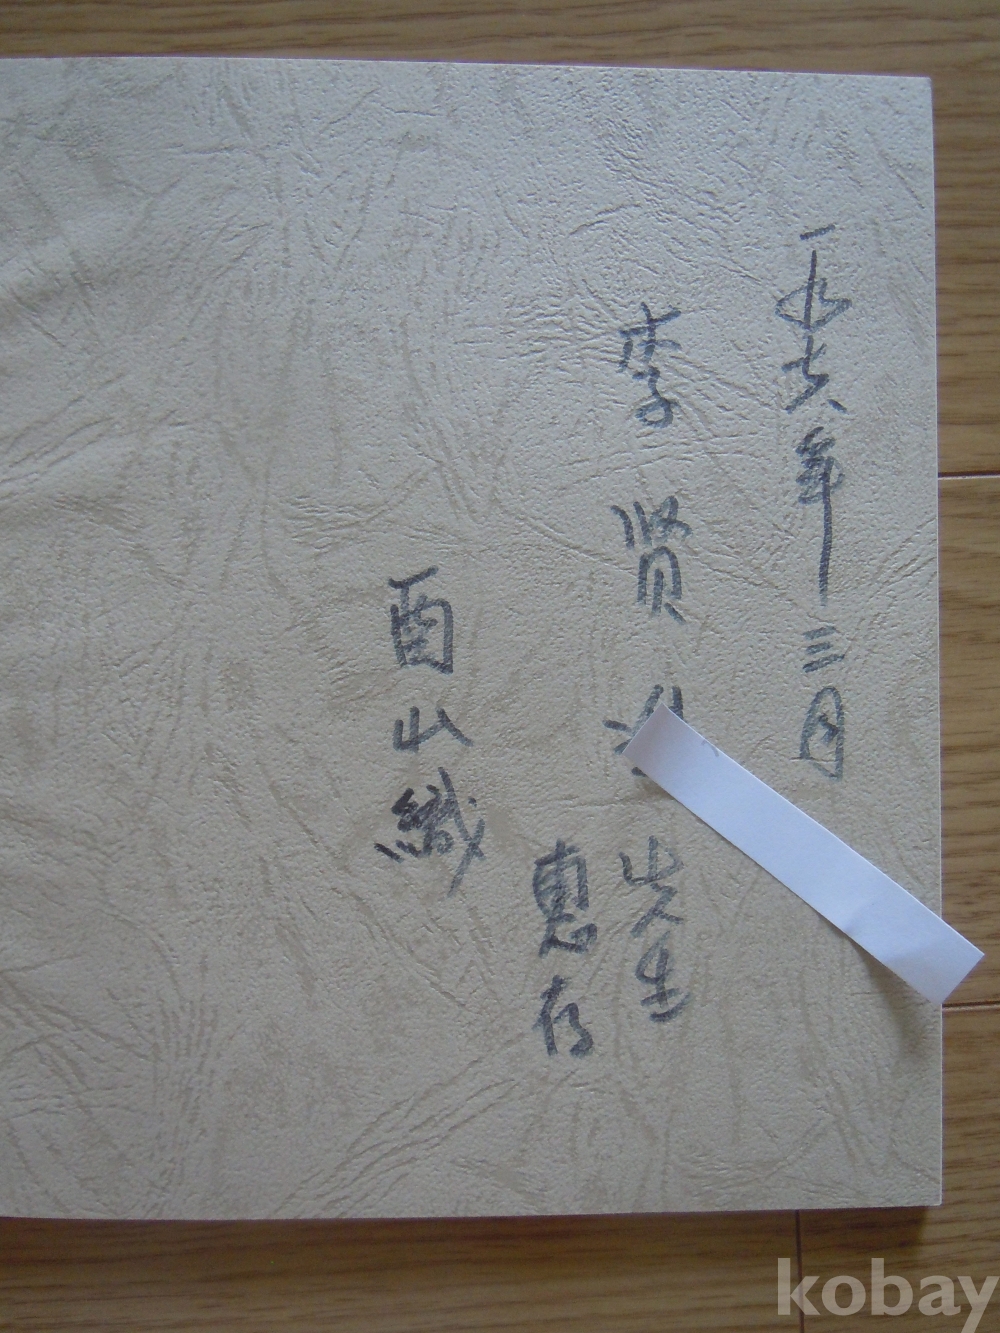 一九七六年三月
李贤 先生
惠存
酉山織
kobay